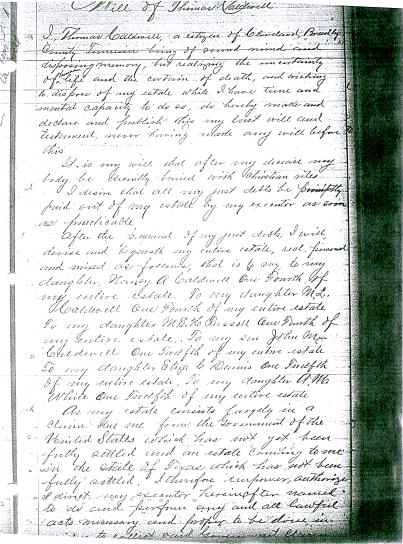 Will of Thomas Caldwell
I, Thomas Caldwell, a citizen of Cleveland, Bradley
County Tennessee being of sound mind and
disposing memory, but realizing the uncertainty
of life and the certain of death, and wishing
to dispose of my estate while I have time and
mental capacity to do so, do hereby make and
declare and publish this my last will and
testament, never having made any will before
this.
It is my will that after my decease my
body be decently buried with Christian rites
I desire that all my just debts be promptly
paid out of my estate by my executor as soon
as practicable
After the payment of my just debts, I will,
devise and bequeath my entire estate, real, personal
and mixed as follows, that is to say to my
daughter, Nancy A Caldwell One Fourth of
my entire estate. To my daughter M.L.
Caldwell One Fourth of my entire estate
To my daughter M.E.H. Russell One Fourth of
my entire estate. To my son John M
Caldwell One Twelfth of my entire estate
To my daughter Eliza C Dennis One Twelfth
of my entire estate. To my daughter A.M.
White One Twelfth of my entire estate
As my estate consists largely in a
claim due me from the Government of the
United States which has not yet been
fully settled and an estate coming to me
in the state of Texas which has not been
fully settled, I therefore empower, authorize
& direct my executor hereinafter named
to do and perform any and all lawful
acts necessary and proper to be done in